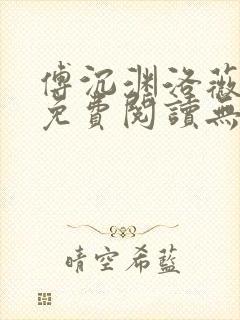 傅沉渊洛薇
免費閱讀無
晴空希藍